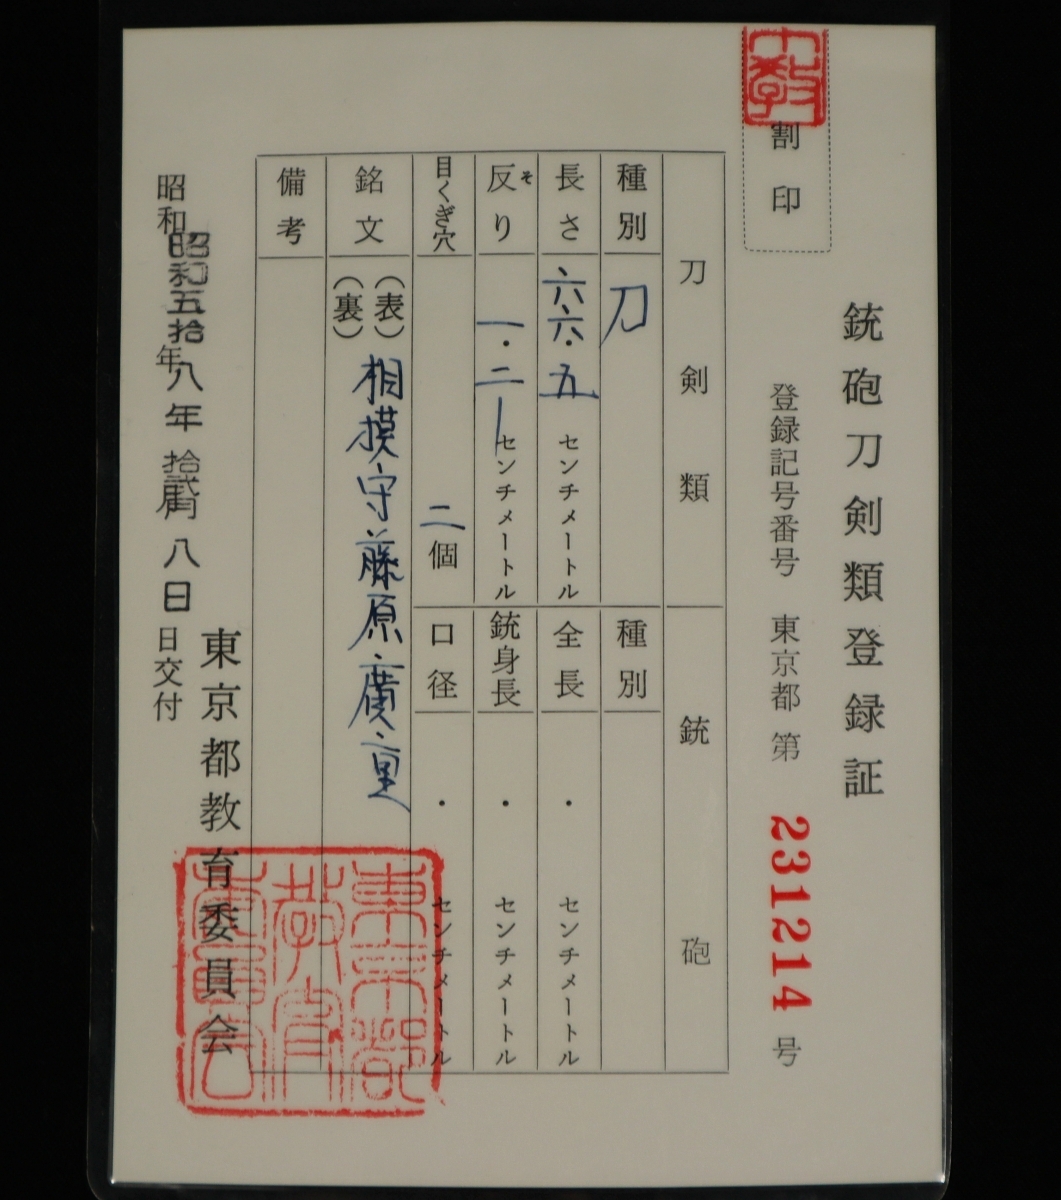 銃砲刀剣類登録証
割印
登録記号番号 東京都 第 231214 号
刀剣類
銃砲
種別
刀
種別
長さ
六六.五
センチメートル
全長
・
センチメートル
反り
そ
一.二
センチメートル
銃身長
・
センチメートル
目くぎ穴
二個
口径
・
センチメートル
銘文
(表) 相摸守藤原廣重
(裏)
備考
昭和
年
昭和五拾八年拾弐月八日
日交付
東京都教育委員会
東京都
教育
委員会